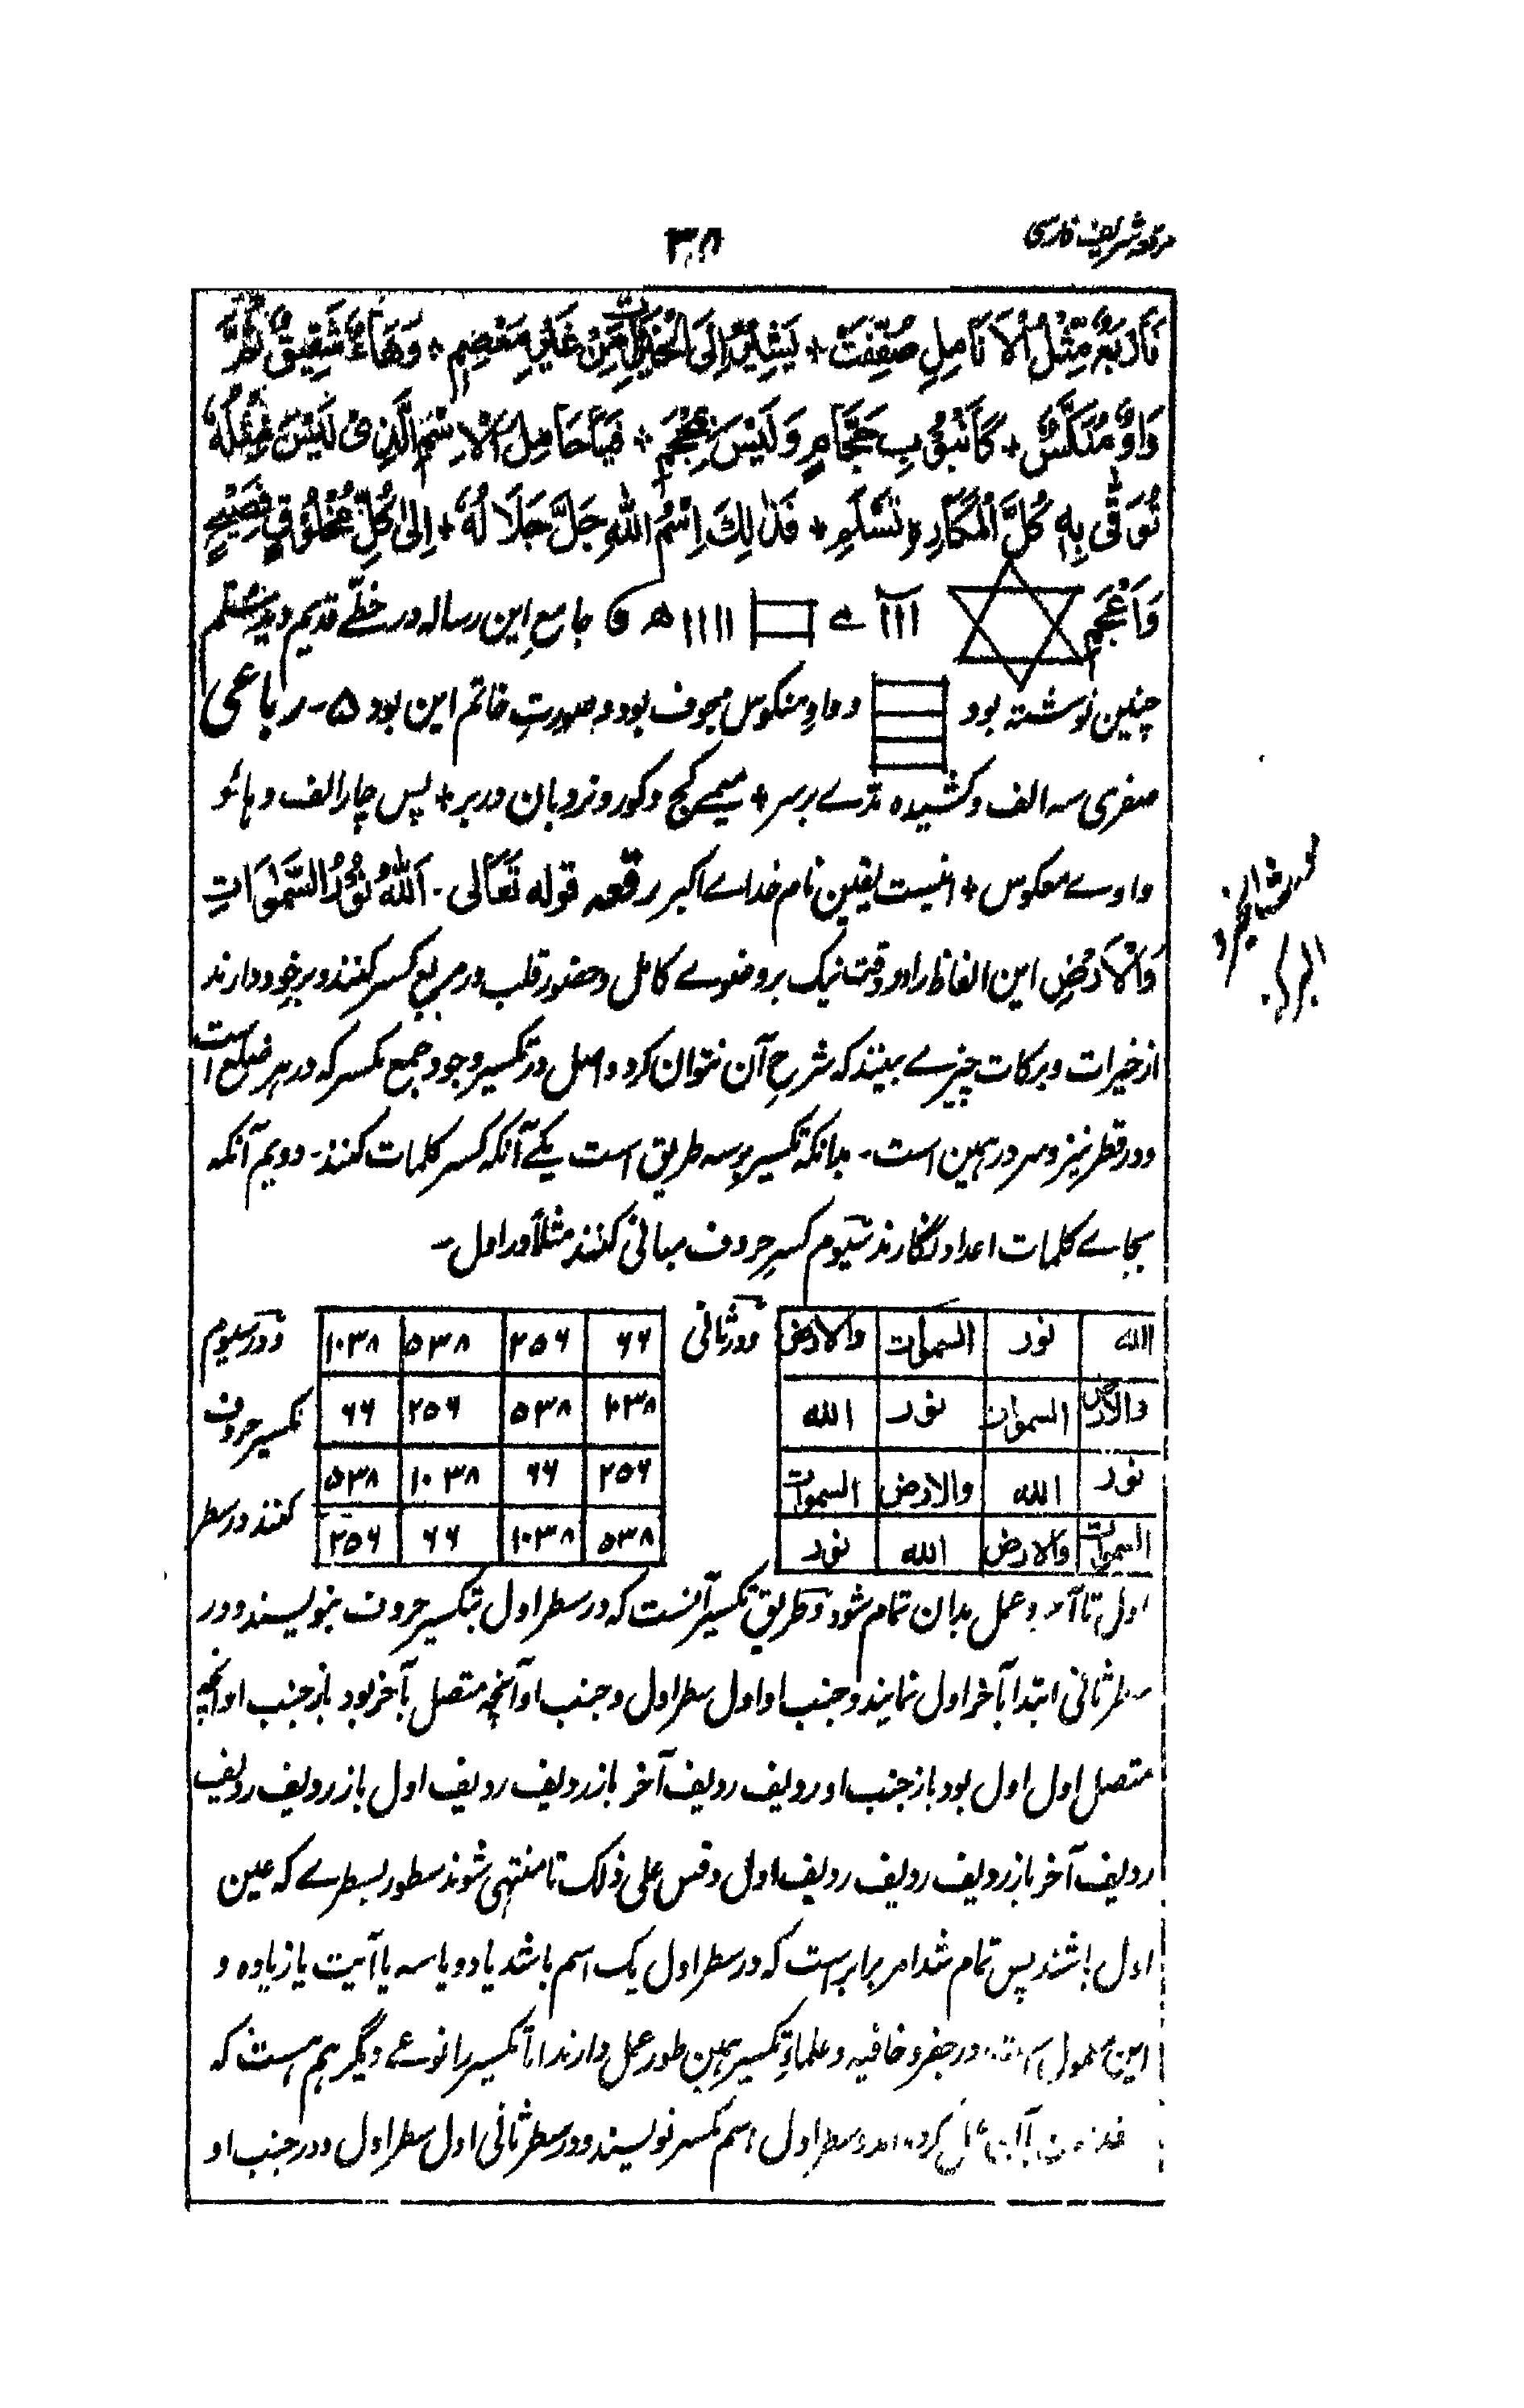 مرقعہ شریف فارسی
۳۸
فَاَرْبَعَةٌ مِثْلُ الْاَنَامِلِ صُفِّفَتْ + يَشِيْرُ اِلَى الْخَيْرَاتِ مِنْ غَيْرِ مِعْصَمِ + وَهَاءٌ شَقِيْقٌ ثُمَّ
وَاوٌ مُنَكَّسٌ + كَاُنْبُوْبِ حَجَّامٍ وَلَيْسَ بِمِحْجَمِ + فَيَا حَامِلَ الْاِسْمِ الَّذِىْ لَيْسَ مِثْلُهٗ
تُوَقّٰى بِهٖ كُلَّ الْمَكَارِهِ تَسْلَمِ + فَذٰلِكَ اِسْمُ اللهِ جَلَّ جَلَالُهٗ + اِلٰى كُلِّ مَخْلُوْقٍ فَصِيْحٍ
وَاَعْجَمِ جامعِ این رسالہ در خطّے قدیم دید میم
چنین نوشتہ بود و واوِ منکوس مجوف بود و صورتِ خاتم این بود ۵ - رباعی
صفری سہ الف و کشیدہ مدّے بر سر + میمے کج و کور و نردبان در بر + پس چار الف و ہائو
واوے معکوس + اینست یقین نام خداے اکبر رقعہ قولہ تَعَالٰی - اَللهُ نُوْرُ السَّمٰوَاتِ
وَالْاَرْضِ این الفاظ را در وقت نیک بر وضوے کامل و حضور قلب در مربع کسر کنند و بر خود دارند
از خیرات و برکات چیزے بینند کہ شرحِ آن نتوان کرد و اصل در تکسیر وجود جمع تکسر کہ در ہر ضلع است
و در قطر نیز و سر در ہمین است - بدانکہ تکسیر بر سہ طریق است یکے آنکہ کسر کلمات کنند - دویم آنکہ
بجاے کلمات اعداد نگارند سیوم کسرِ حروف مبانی کنند مثلاً در اول -
الله نور السموات والارض
والارض السموات نور الله
نور الله والارض السموات
السموات والارض الله نور
ودر ثانی
۶۶ ۲۵۶ ۵۳۸ ۱۰۳۸
۱۰۳۸ ۵۳۸ ۲۵۶ ۶۶
۲۵۶ ۶۶ ۱۰۳۸ ۵۳۸
۵۳۸ ۱۰۳۸ ۶۶ ۲۵۶
ودر سیوم
تکسیر حروف
کنند در سطر
اول تا آخر و عمل بدان تمام شود و طریق تکسیر آنست کہ در سطر اول بتکسیر حروف بنویسند و در
سطر ثانی ابتدا بآخر اول نمایند و جنب او اول سطر اول و جنب او آنچہ متصل بآخر بود باز جنب او آنچہ
متصل اول اول بود باز جنب او ردیف ردیف آخر باز ردیف ردیف اول باز ردیف ردیف
ردیف آخر باز ردیف ردیف ردیف اول وقس علی ذلک تا منتہی شوند سطور بسطرے کہ عین
اول باشند پس تمام شد امر برابر است کہ در سطر اول یک اسم باشد یا دو یا سہ یا آیت یا زیادہ و
این معمول در جفر و خافیہ و علماءِ تکسیر ہمین طور عمل دارند اما تکسیر را نوعے دیگر ہم ہست کہ
در سطر اول اسم تکسر نویسند و در سطر ثانی اول سطر اول و در جنب او